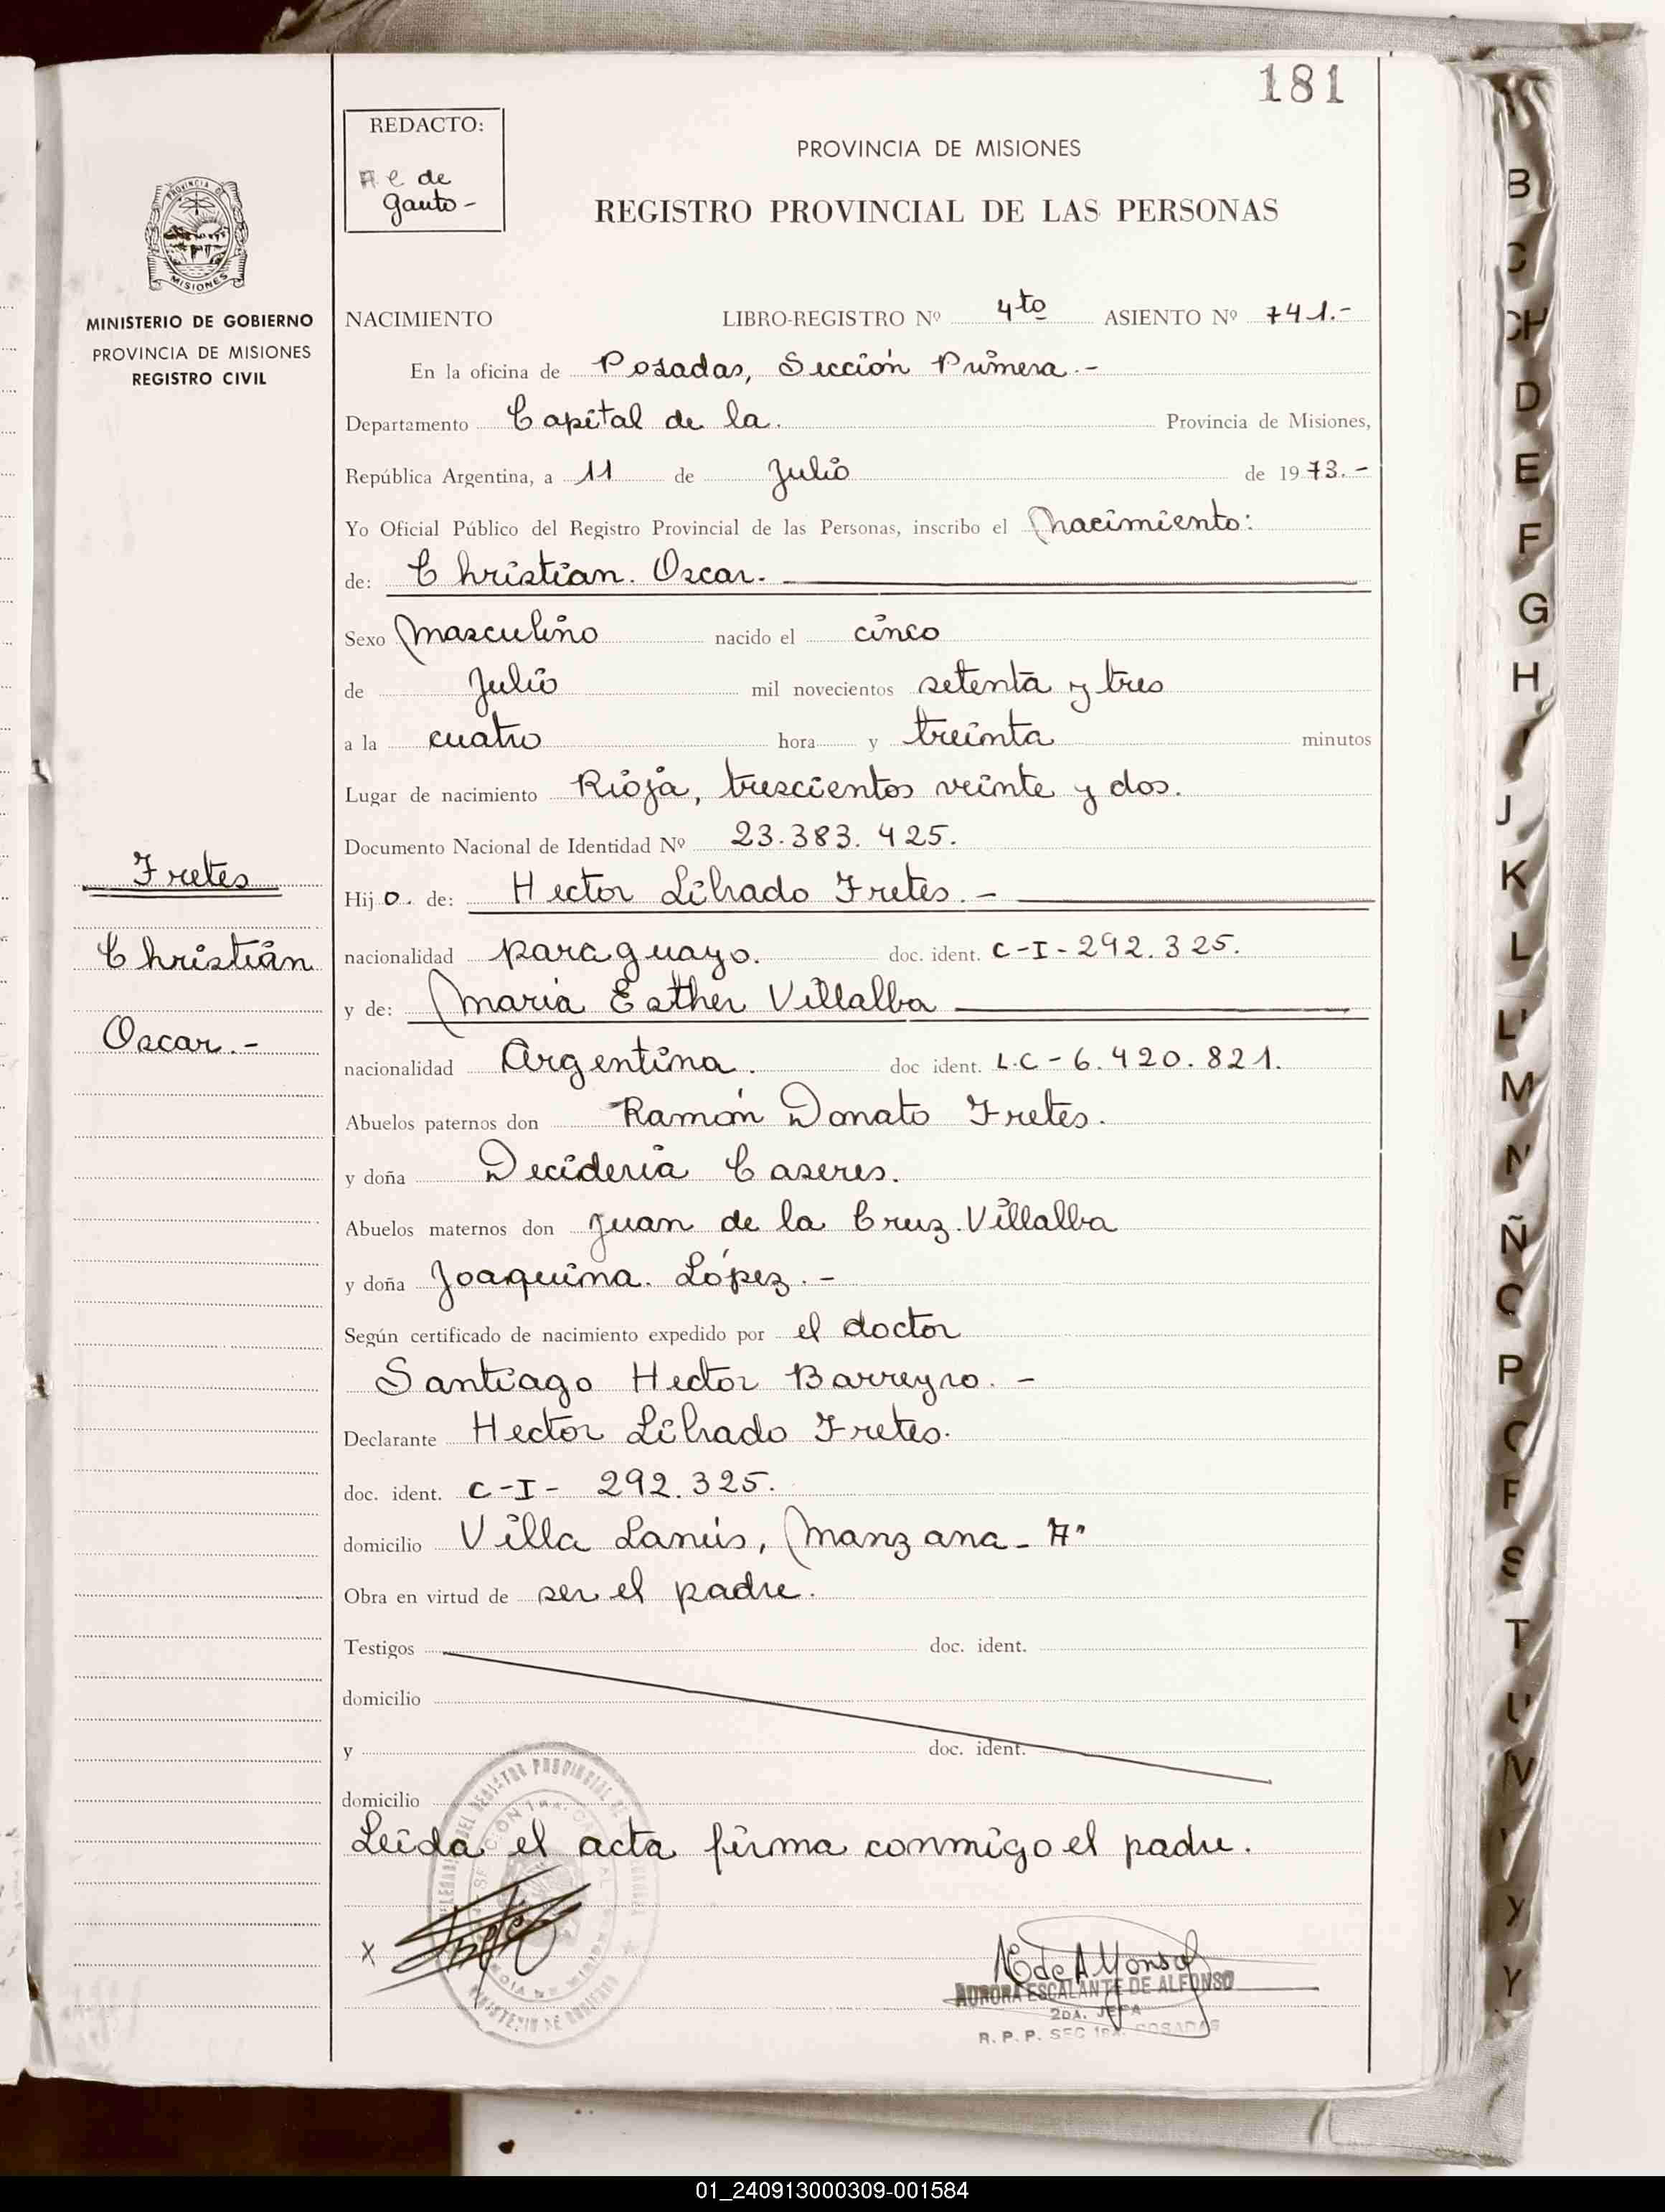 181
REDACTO:
A e de
Gauto-
PROVINCIA DE MISIONES
REGISTRO PROVINCIAL DE LAS PERSONAS
PROVINCIA DE
MISIONES
MINISTERIO DE GOBIERNO
PROVINCIA DE MISIONES
REGISTRO CIVIL
NACIMIENTO LIBRO-REGISTRO Nº 4to ASIENTO Nº 741.-
En la oficina de Posadas, Sección Primera.-
Departamento Capital de la. Provincia de Misiones,
República Argentina, a 11 de Julio de 1973.-
Yo Oficial Público del Registro Provincial de las Personas, inscribo el Nacimiento:
de: Christian. Oscar.
Sexo Masculino nacido el cinco
de Julio mil novecientos setenta y tres
a la cuatro hora y treinta minutos
Lugar de nacimiento Rioja, trescientos veinte y dos.
Documento Nacional de Identidad Nº 23.383.425.
Fretes
Hijo. de: Hector Librado Fretes.-
Christian
nacionalidad paraguayo. doc. ident. C-I-292.325.
y de: Maria Esther Villalba
Oscar.-
nacionalidad Argentina. doc ident. L.C-6.420.821.
Abuelos paternos don Ramón Donato Fretes.
y doña Decideria Caseres.
Abuelos maternos don Juan de la Cruz.Villalba
y doña Joaquina. López.-
Según certificado de nacimiento expedido por el doctor
Santiago Hector Barreyro.-
Declarante Hector Librado Fretes.
doc. ident. C-I- 292.325.
domicilio Villa Lanús, Manzana- A"
Obra en virtud de ser el padre.
Testigos doc. ident.
domicilio
y doc. ident.
domicilio
Leida el acta firma conmigo el padre.
X
AEdeAlfonso
AURORA ESCALANTE DE ALFONSO
2DA. JEFA
R. P. P. SEC 1RA. POSADAS
B
C
CH
D
E
F
G
H
I
J
K
L
LL
M
N
Ñ
O
P
Q
R
S
T
U
V
Y
Y
01_240913000309-001584